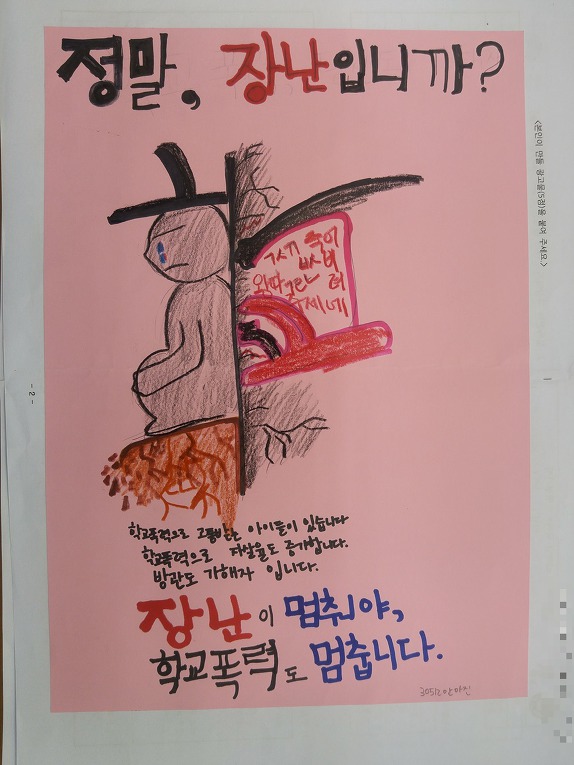 정말, 장난입니까?
죽어
왕따
학교폭력으로 고통받는 아이들이 있습니다
학교폭력으로 자살율도 증가합니다.
방관도 가해자 입니다.
장난이 멈춰야,
학교폭력도 멈춥니다.
<본인이 만든 광고물(5점)을 붙여 주세요.>
- 2 -